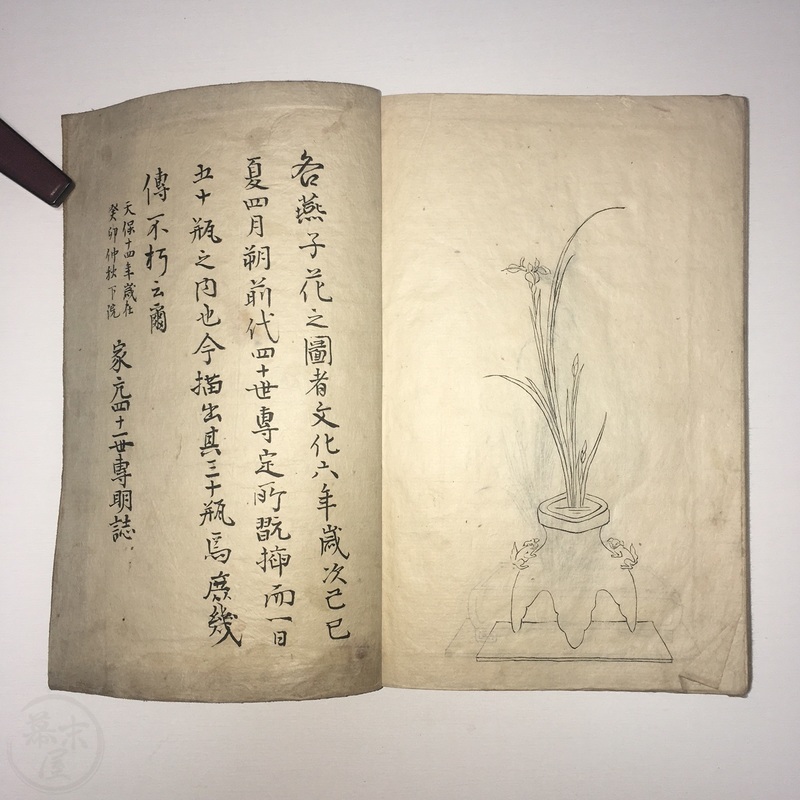 各燕子花之圖者文化六年歳次己巳
夏四月朔前代四十世專定所翫挿而一日
五十瓶之内也今描出其三十瓶焉庶幾
傳不朽云爾
天保十四年歳在
癸卯仲秋下浣
家元四十一世專明誌
幕末屋